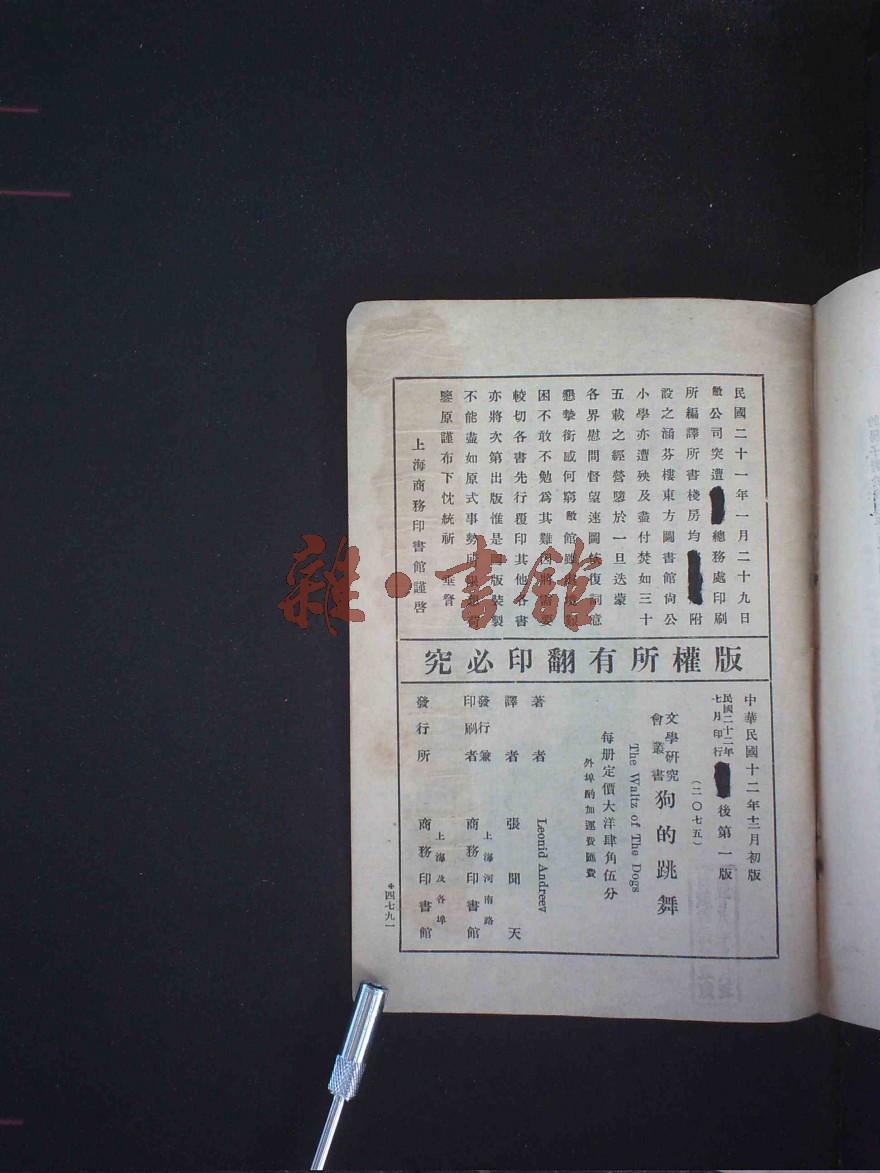 民國二十一年一月二十九日
敝公司突遭 總務處印刷
所編譯所書棧房均 附
設之涵芬樓東方圖書館尙公
小學亦遭殃及盡付焚如三十
五載之經營隳於一旦迭蒙
各界慰問督望速圖恢復詞意
懇摯銜感何窮敝館雖
困不敢不勉爲其難因將
較切各書先行覆印其他各書
亦將次第出版惟是圖版裝製
不能盡如原式事勢所限
鑒原謹布下忱統祈 垂詧
上海商務印書館謹啓
版權所有翻印必究
中華民國十二年十二月初版
民國二十二年七月印行 後第一版
(二〇七五)
文學研究會叢書 狗的跳舞
The Waltz of The Dogs
每册定價大洋肆角伍分
外埠酌加運費匯費
著者 Leonid Andreev
譯者 張聞天
發行兼印刷者 上海河南路 商務印書館
發行所 上海及各埠 商務印書館
*四七九一
雜·書館